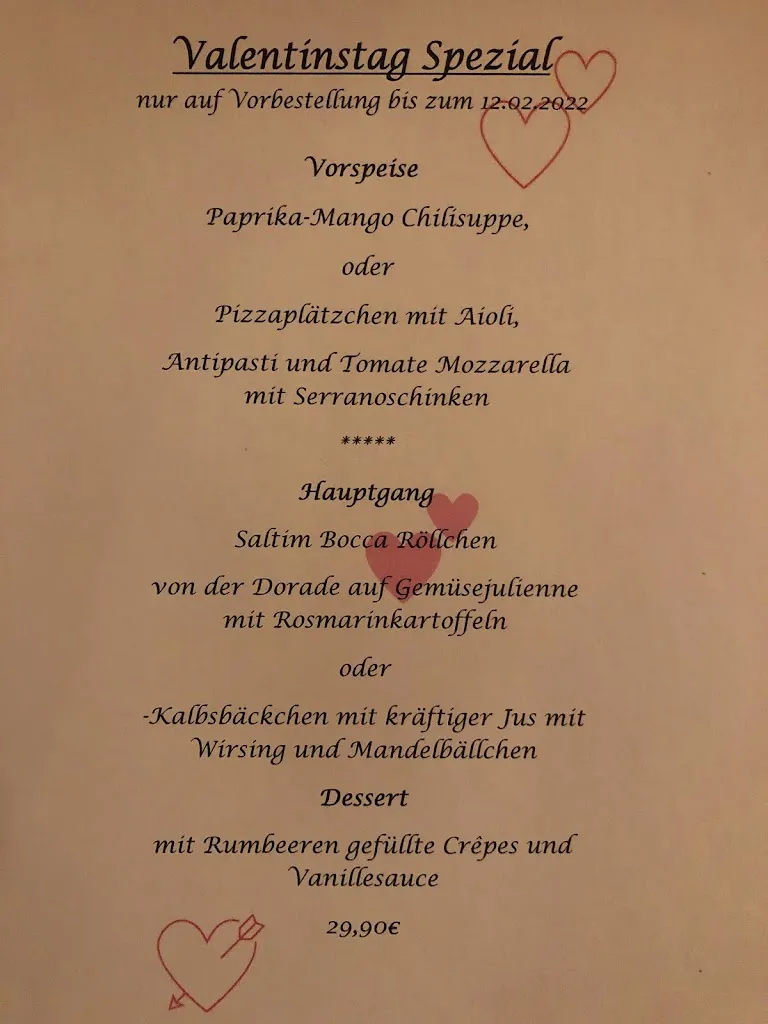 Valentinstag Spezial
nur auf Vorbestellung bis zum 12.02.2022
Vorspeise
Paprika-Mango Chilisuppe,
oder
Pizzaplätzchen mit Aioli,
Antipasti und Tomate Mozzarella
mit Serranoschinken
*****
Hauptgang
Saltim Bocca Röllchen
von der Dorade auf Gemüsejulienne
mit Rosmarinkartoffeln
oder
-Kalbsbäckchen mit kräftiger Jus mit
Wirsing und Mandelbällchen
Dessert
mit Rumbeeren gefüllte Crêpes und
Vanillesauce
29,90€